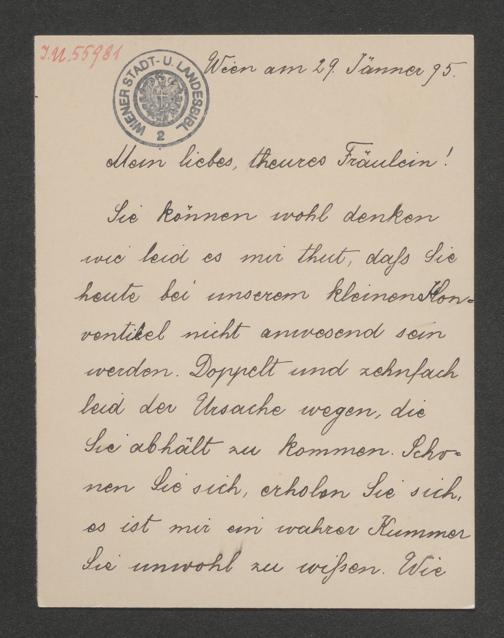 I.N. 55981
WIENER STADT- U. LANDESBIBL.
2
Wien am 29. Jänner 95.
Mein liebes, theures Fräulein!
Sie können wohl denken
wie leid es mir thut, daß Sie
heute bei unserem kleinen Kon-
ventikel nicht anwesend sein
werden. Doppelt und zehnfach
leid der Ursache wegen, die
Sie abhält zu kommen. Scho-
nen Sie sich, erholen Sie sich,
es ist mir ein wahrer Kummer
Sie unwohl zu wißen. Wie